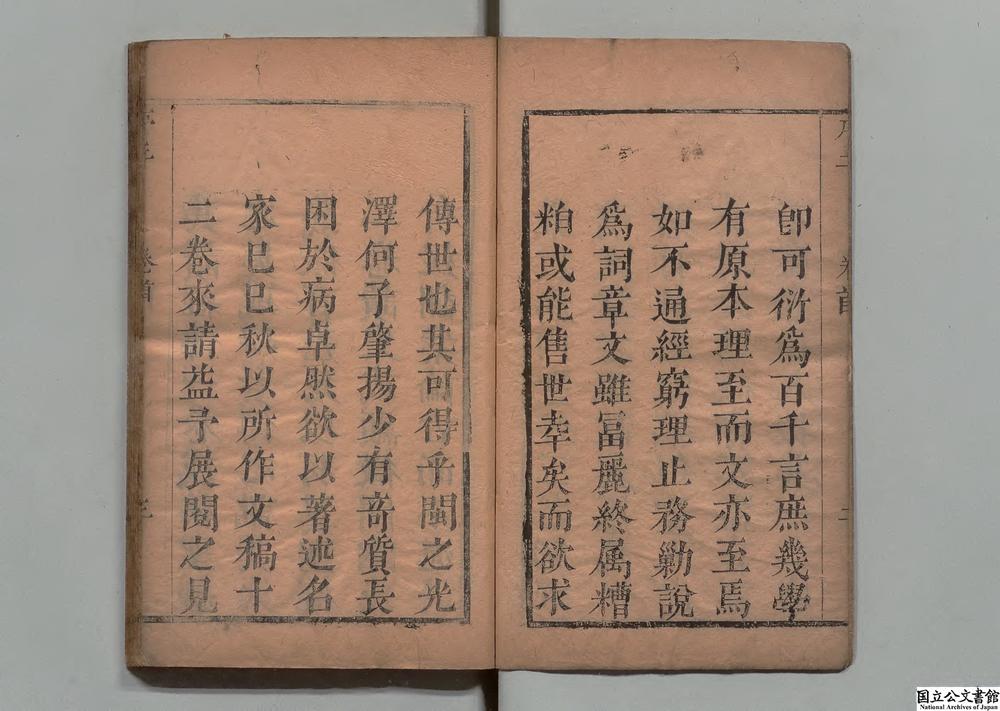 卽可衍爲百千言庶幾學
有原本理至而文亦至焉
如不通經窮理止務勦說
爲詞章文雖富麗終属糟
粕或能售世幸矣而欲求
傳世也其可得乎閩之光
澤何子肇揚少有竒質長
困於病卓然欲以著述名
家巳巳秋以所作文稿十
二卷來請益予展閱之見
卷首
二
卷首
三
国立公文書館
National Archives of Japan